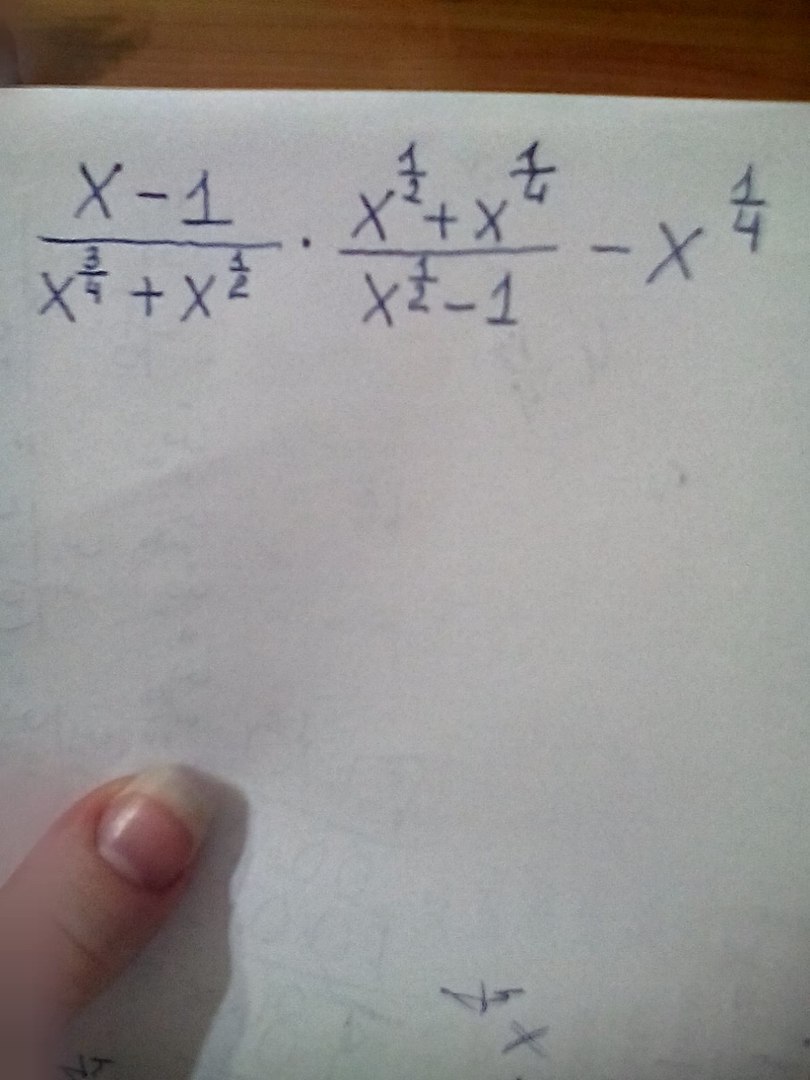 \frac{x-1}{x^{\frac{3}{4}}+x^{\frac{1}{2}}} \cdot \frac{x^{\frac{1}{2}}+x^{\frac{1}{4}}}{x^{\frac{1}{2}}-1} - x^{\frac{1}{4}}